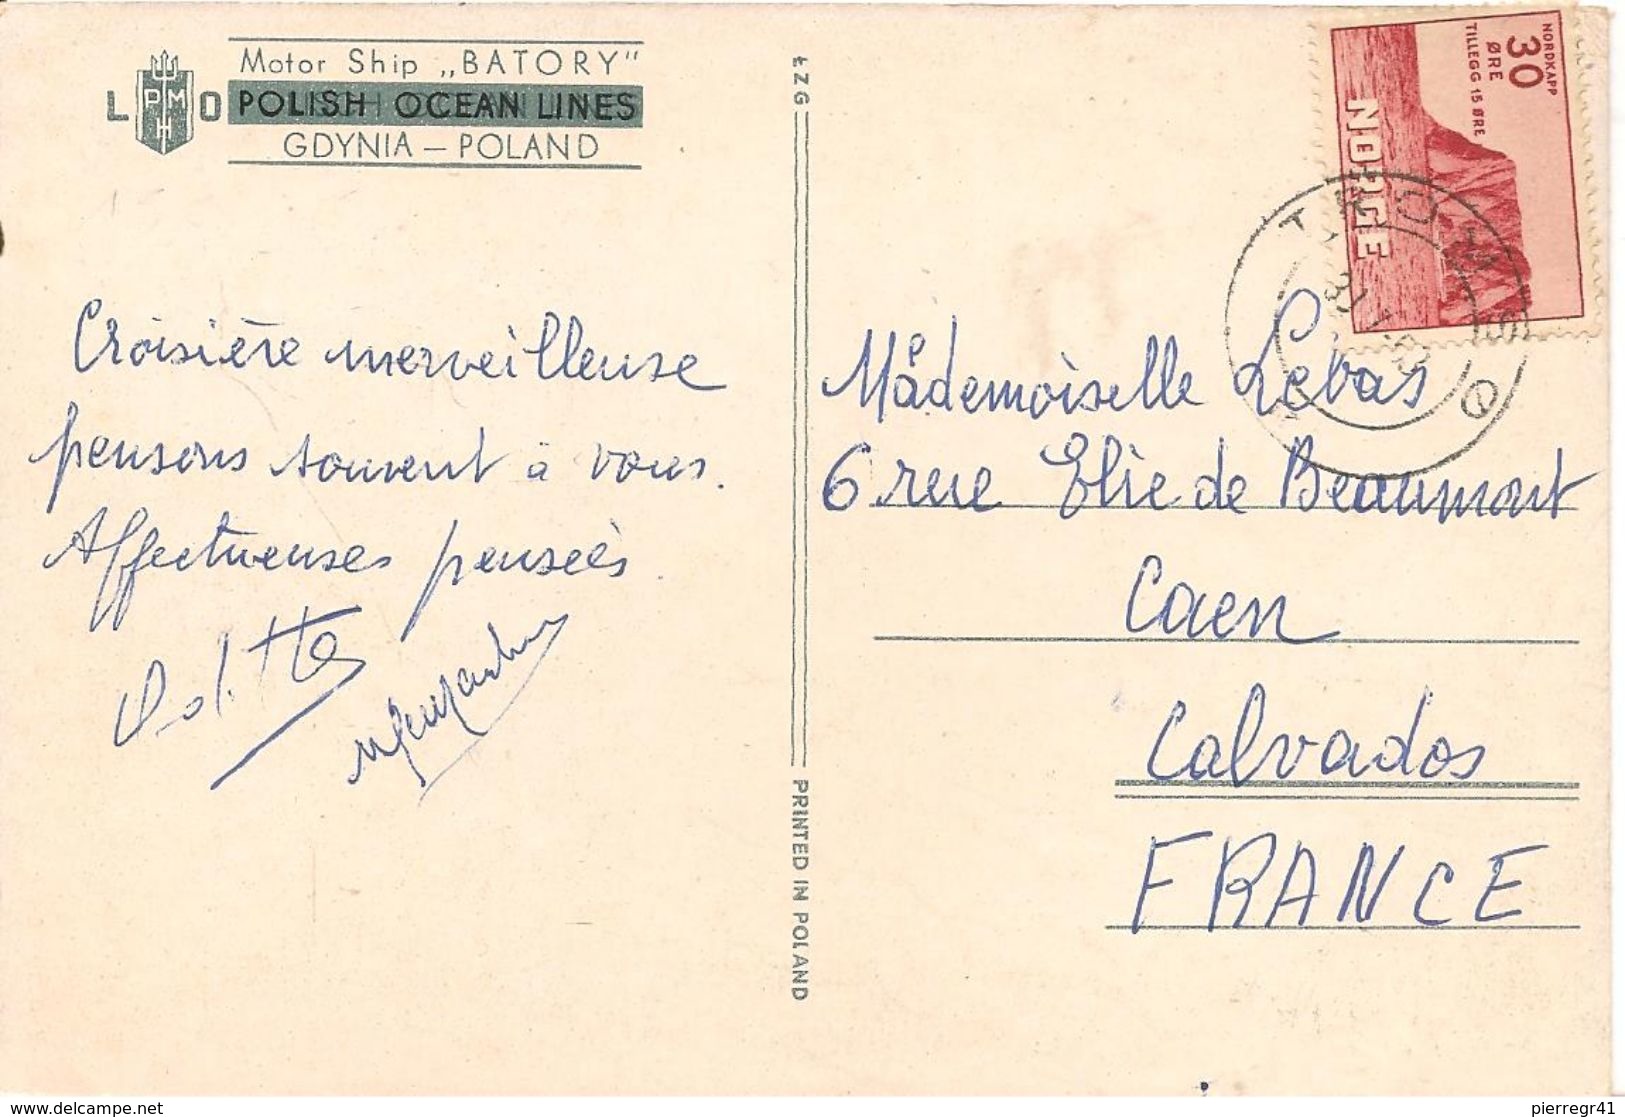 Motor Ship „BATORY"
L PMH O POLISH OCEAN LINES
GDYNIA – POLAND
Croisière merveilleuse
pensons souvent à vous.
Affectueuses pensées.
ŁZG
PRINTED IN POLAND
NORDKAPP
30
ØRE
TILLEGG 15 ØRE
NORGE
TROMSØ
Mademoiselle Lebas
6 rue Elie de Beaumont
Caen
Calvados
FRANCE
pierregr41